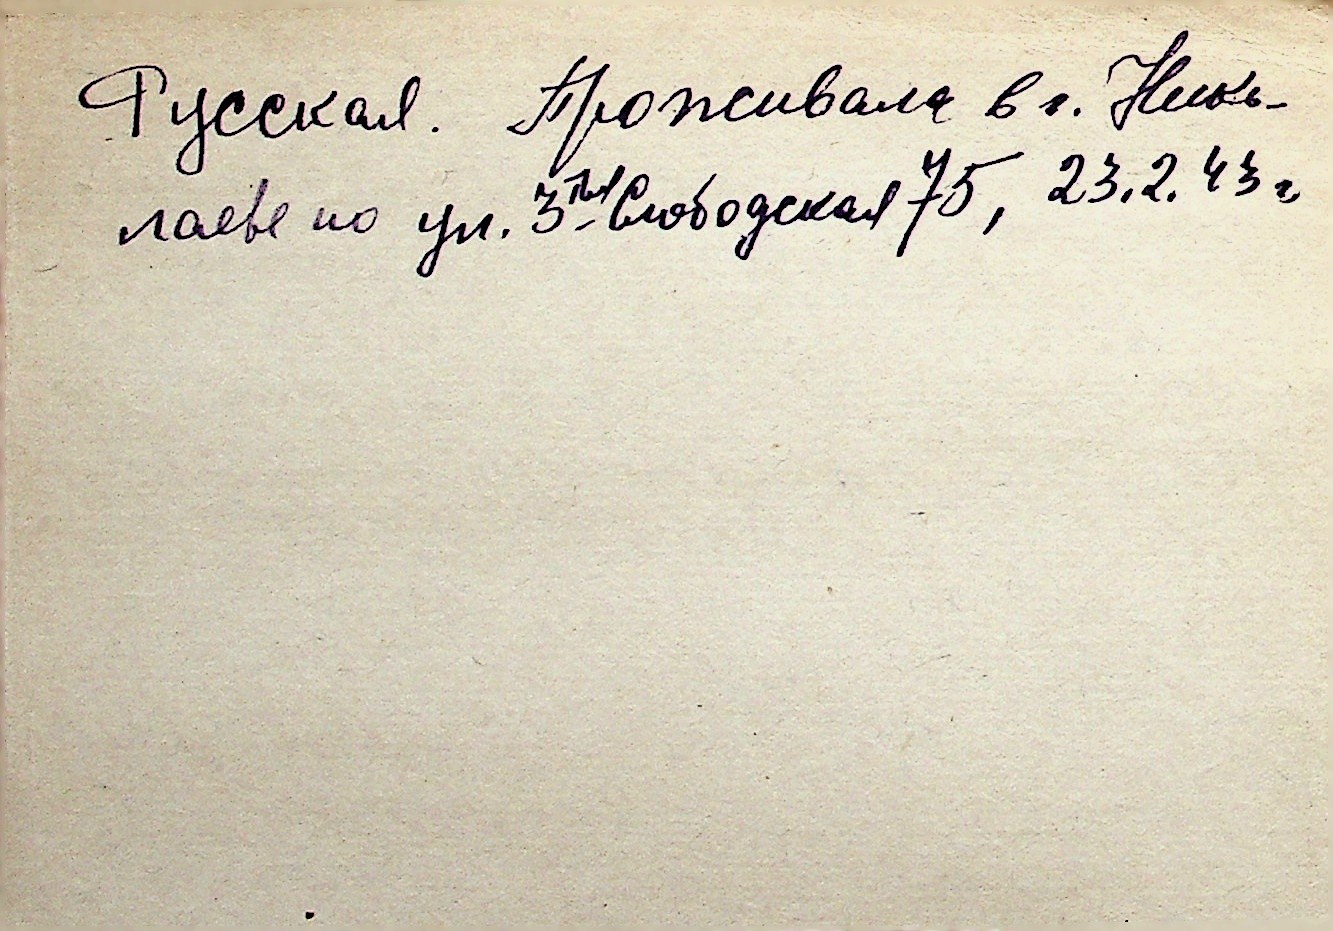 Русская. Проживала в г. Нико-
лаеве по ул. 3тья Слободская 75, 23.2.43 г.